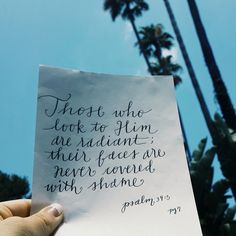 Those who
look to Him
are radiant;
their faces are
never covered
with shame
psalm 34:5